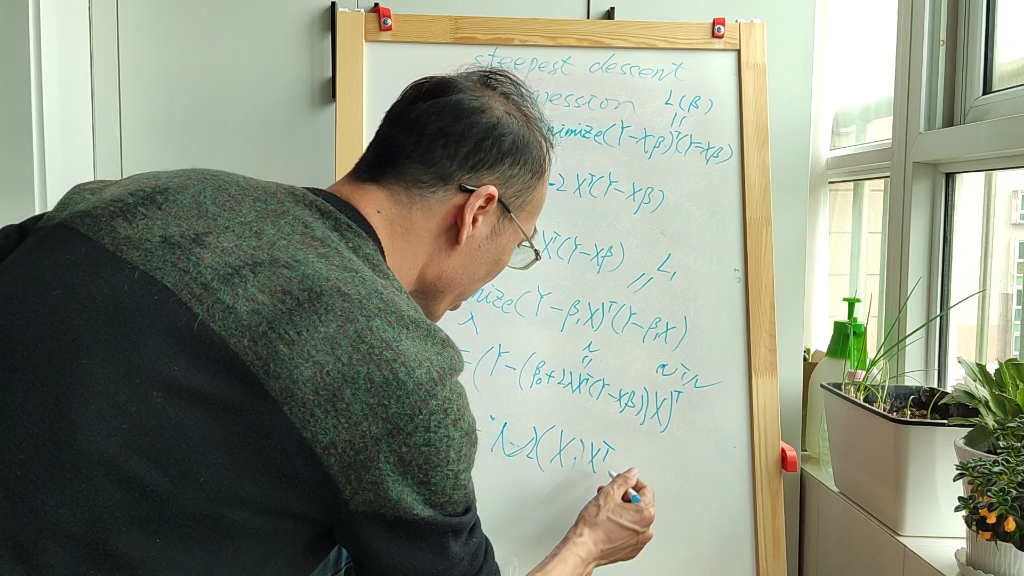 steepest descent
ession L(β)
imize(Y-Xβ)ᵀ(Y-Xβ)
-2Xᵀ(Y-Xβ)
Xᵀ(Y-Xβ) // L₁
ize(Y-β₁X)ᵀ(Y-β₁X)
λ
=(Y-(β₀+2λXᵀ(Y-Xβ))X)ᵀ